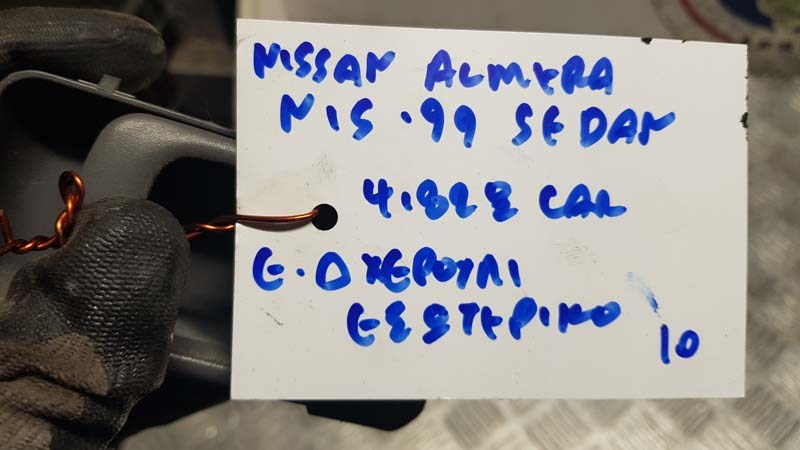 NISSAN ALMERA
N15 .99 SEDAN
CAL
Ε.Δ ΧΕΡΟΥΛΙ
ΕΣΩΤΕΡΙΚΟ
10